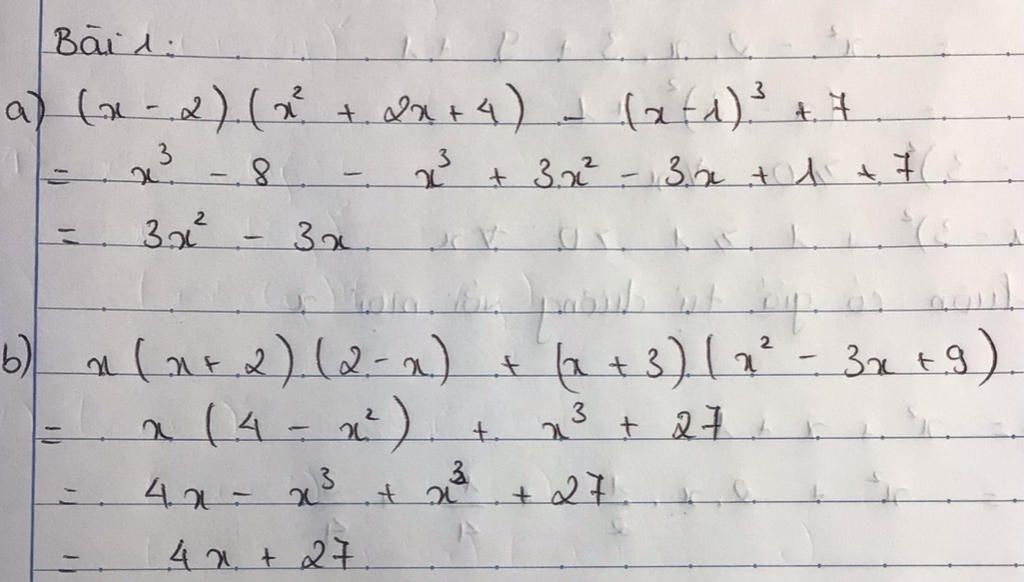 Bài 1:
a) (x - 2)(x² + 2x + 4) - (x - 1)³ + 7
= x³ - 8 - x³ + 3x² - 3x + 1 + 7
= 3x² - 3x
b) x(x + 2)(2 - x) + (x + 3)(x² - 3x + 9)
= x(4 - x²) + x³ + 27
= 4x - x³ + x³ + 27
= 4x + 27